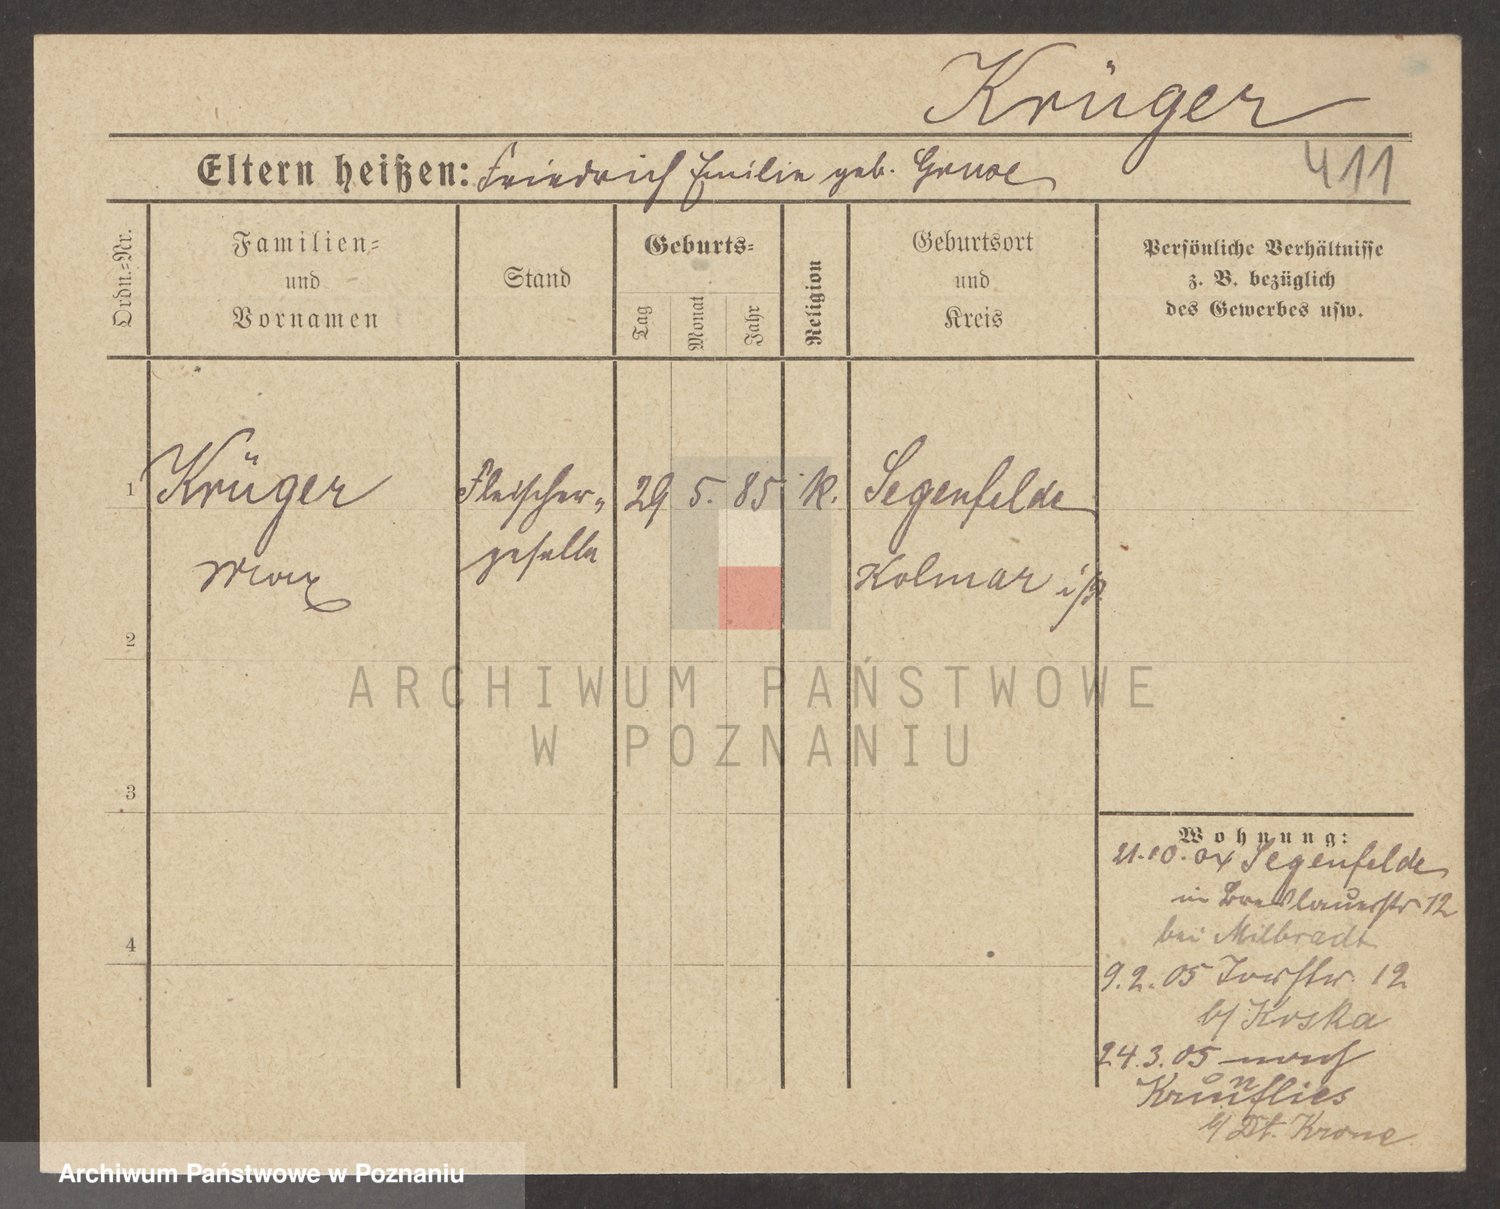 Krüger
Eltern heißen: Friedrich Emilie geb.
411
Ordn.-Nr.
Familien-
und
Vornamen
Stand
Geburts-
Tag
Monat
Jahr
Religion
Geburtsort
und
Kreis
Persönliche Verhältnisse
z. B. bezüglich
des Gewerbes usw.
1 Krüger Fleischer- 29 5. 85 k. Segenfelde
Max geselle Kolmar i/P.
2
ARCHIWUM PAŃSTWOWE
W POZNANIU
3
Wohnung:
21.10.04 Segenfelde
in Breslauerstr 12
bei Milbradt
9.2.05 Torstr. 12
b/ Koska
4
24.3.05 nach
b/ Dt. Krone
Archiwum Państwowe w Poznaniu